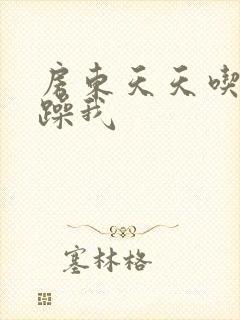 房东天天喫
躁我
塞林格